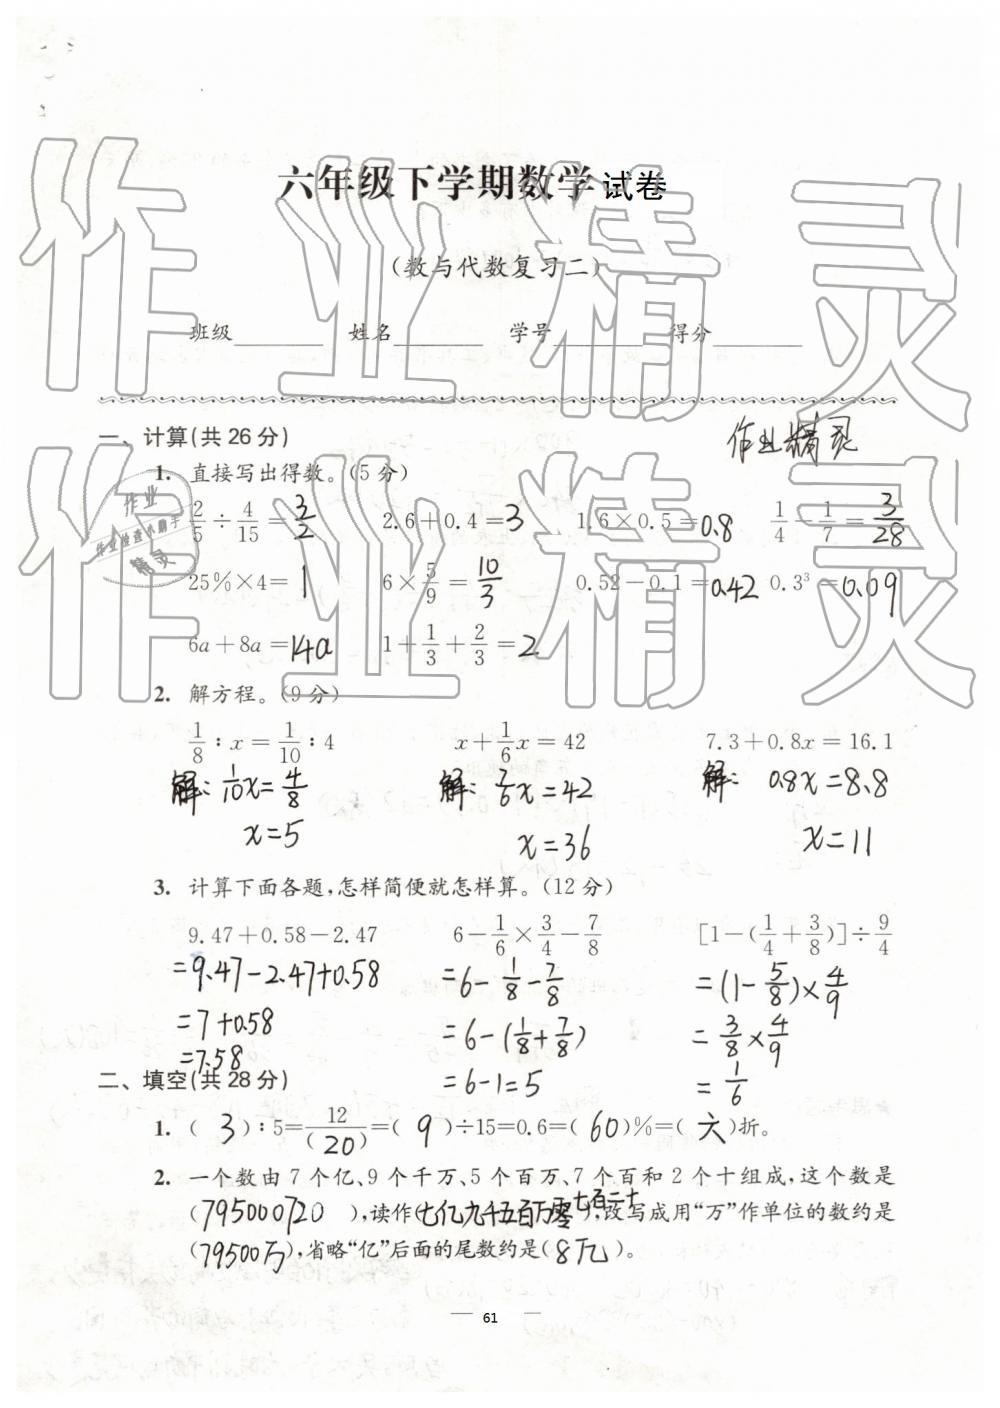 六年级下学期数学试卷
(数与代数复习二)
班级________ 姓名________ 学号________ 得分________
作业精灵
一、计算(共 26 分)
1. 直接写出得数。(5 分)
2/5 ÷ 4/15 = 3/2  2.6+0.4=3  1.6×0.5=0.8  1/4 − 1/7 = 3/28
25%×4=1  6×5/9=10/3  0.52−0.1=0.42  0.3³=0.09
6a+8a=14a  1+1/3+2/3=2
2. 解方程。(9 分)
1/8 : x = 1/10 : 4  x+1/6x=42  7.3+0.8x=16.1
解: 1/10x=4/8  解: 7/6x=42  解: 0.8x=8.8
x=5  x=36  x=11
3. 计算下面各题,怎样简便就怎样算。(12 分)
9.47+0.58−2.47  6−1/6×3/4−7/8  [1−(1/4+3/8)]÷9/4
=9.47−2.47+0.58  =6−1/8−7/8  =(1−5/8)×4/9
=7+0.58  =6−(1/8+7/8)  =3/8×4/9
=7.58  =6−1=5  =1/6
二、填空(共 28 分)
1. ( 3 ) : 5=12/(20)=( 9 )÷15=0.6=( 60 )%=( 六 )折。
2. 一个数由 7 个亿、9 个千万、5 个百万、7 个百和 2 个十组成,这个数是
(795000720),读作(七亿九千五百万零七百二十),改写成用“万”作单位的数约是
(79500万),省略“亿”后面的尾数约是(8亿)。
— 61 —
作业
作业检查小助手
精灵
作业精灵
作业精灵